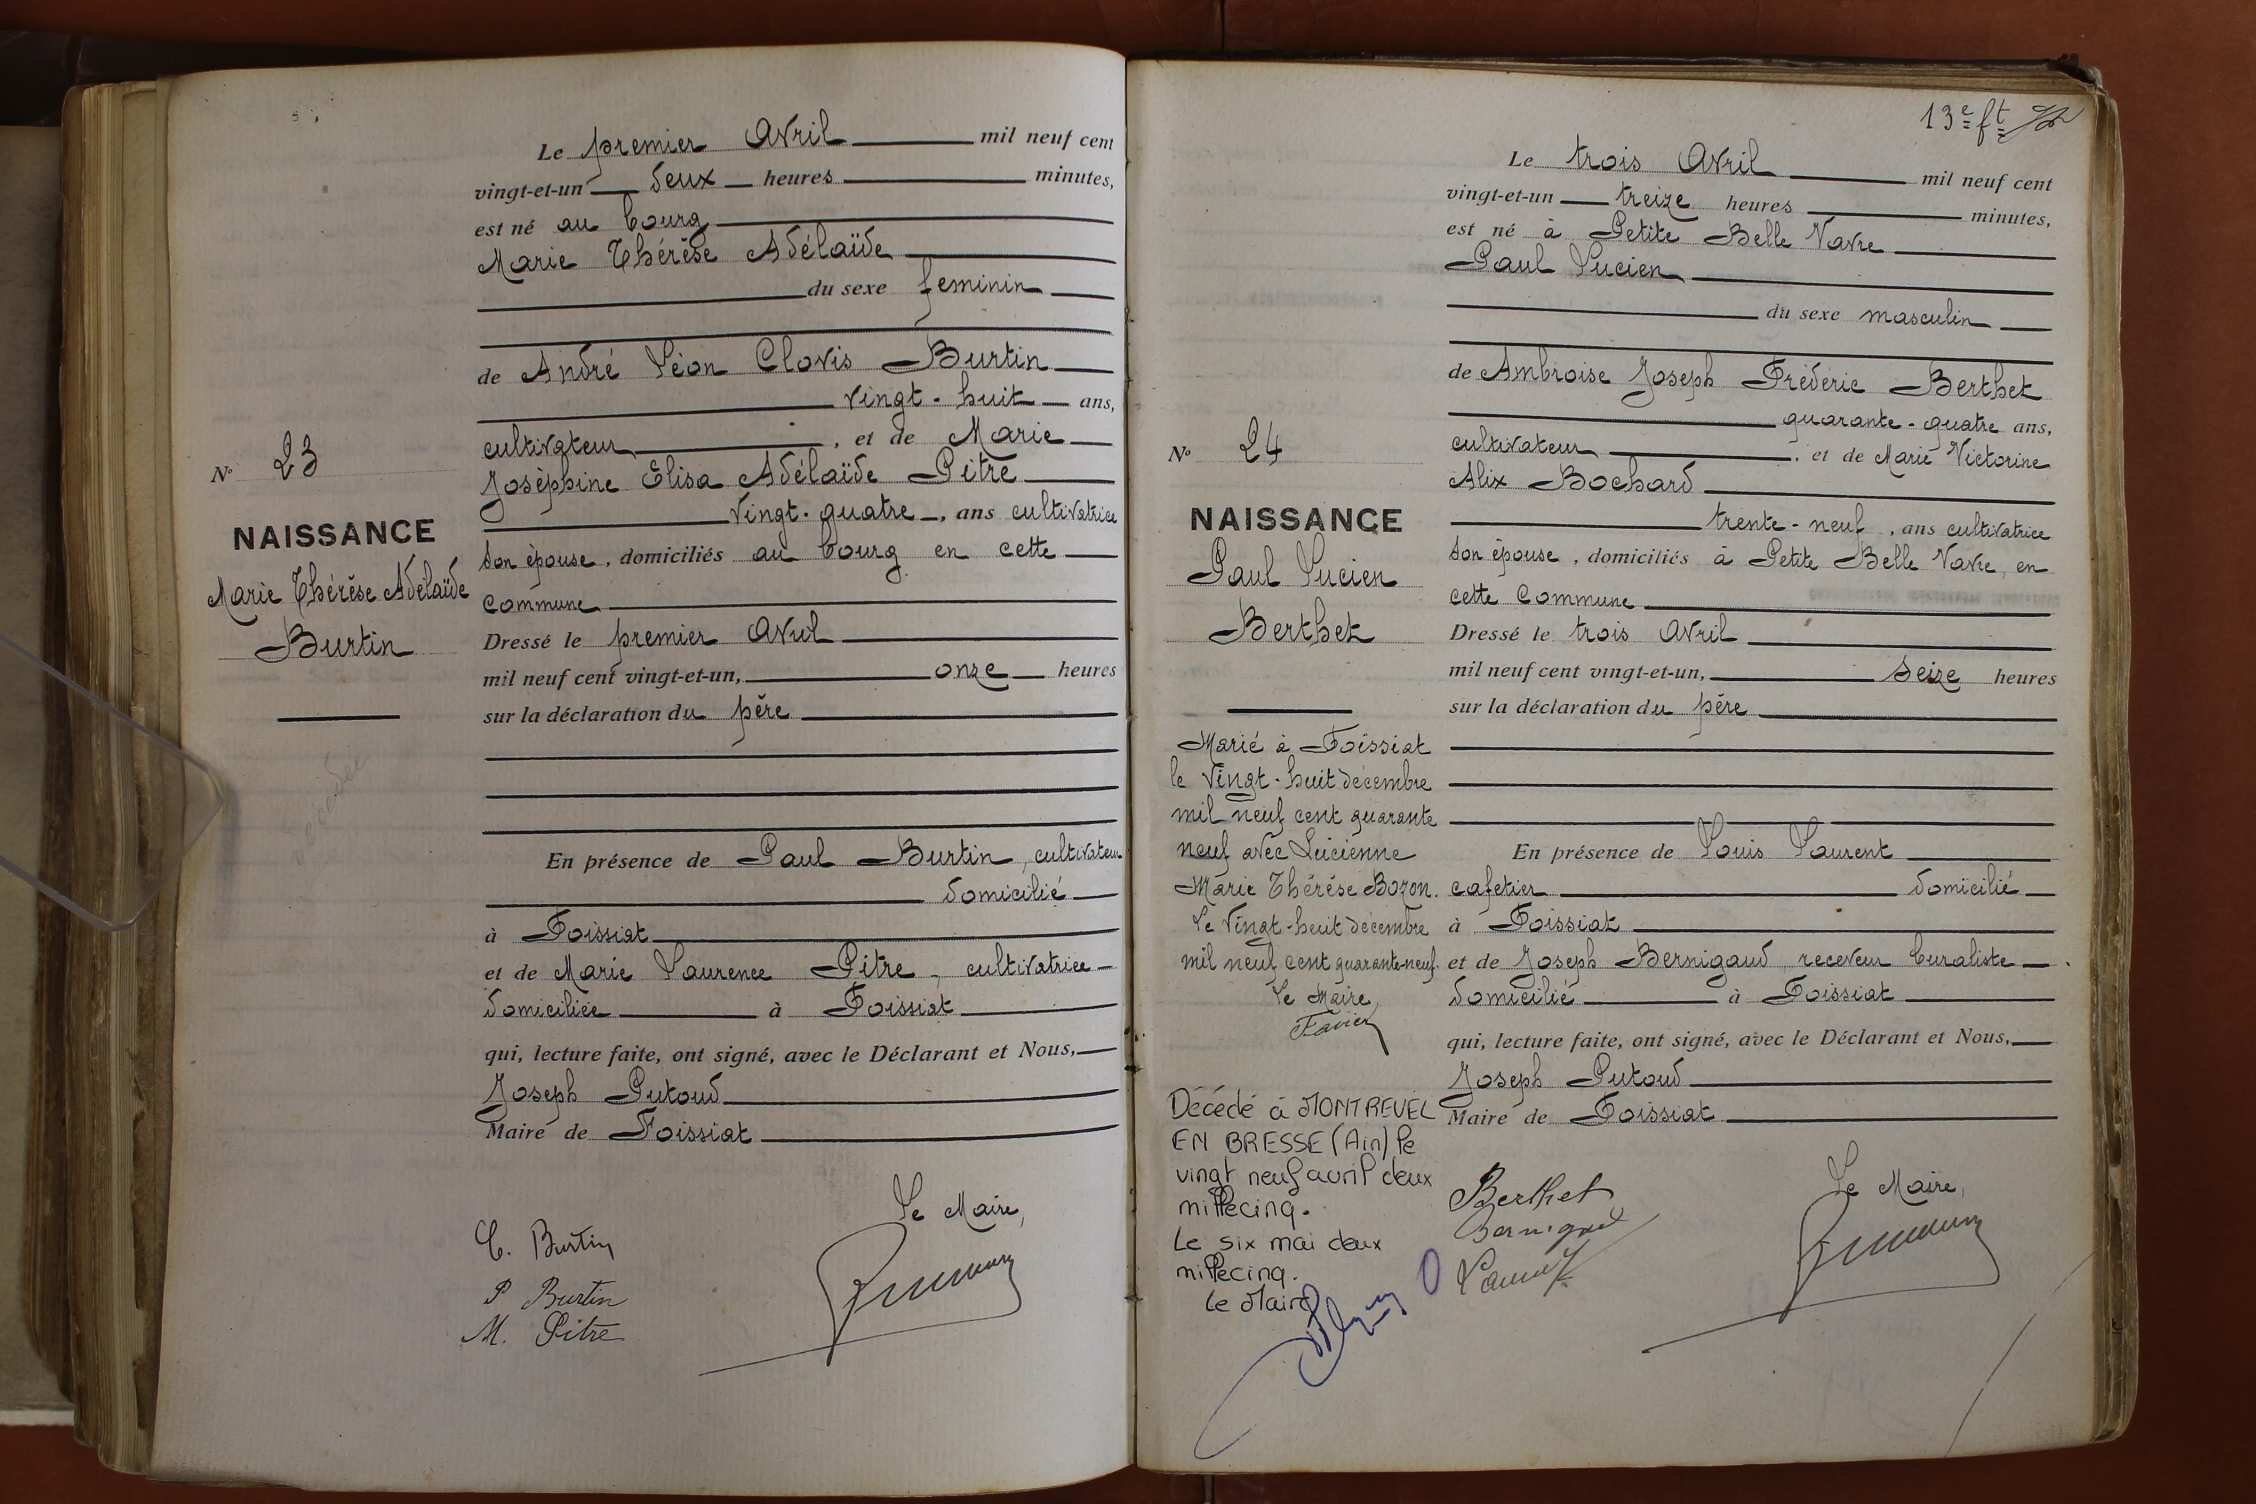 Le premier Avril mil neuf cent
vingt-et-un deux heures minutes,
est né au bourg
Marie Thérèse Adélaïde
du sexe feminin
de André Léon Clovis Burtin
vingt-huit ans,
cultivateur, et de Marie
Joséphine Elisa Adélaïde Pitre
vingt-quatre, ans cultivatrice
son épouse, domiciliés au bourg en cette
commune
Dressé le premier Avril
mil neuf cent vingt-et-un, onze heures
sur la déclaration du père
En présence de Paul Burtin, cultivateur
domicilié
à Foissiat
et de Marie Laurence Pitre, cultivatrice
domiciliée à Foissiat
qui, lecture faite, ont signé, avec le Déclarant et Nous,
Joseph Putoud
Maire de Foissiat
Le Maire,
C. Burtin
P Burtin
M. Pitre
No 23
NAISSANCE
Marie Thérèse Adélaïde
Burtin
décédée
13e ft
Le trois Avril mil neuf cent
vingt-et-un treize heures minutes,
est né à Petite Belle Vavre
Paul Lucien
du sexe masculin
de Ambroise Joseph Frédéric Berthet
quarante-quatre ans,
cultivateur, et de Marie Victorine
Alix Bochard
trente-neuf, ans cultivatrice
son épouse, domiciliés à Petite Belle Vavre, en
cette Commune
Dressé le trois Avril
mil neuf cent vingt-et-un, seize heures
sur la déclaration du père
En présence de Louis Laurent
cafetier domicilié
à Foissiat
et de Joseph Bernigaud, receveur buraliste
domicilié à Foissiat
qui, lecture faite, ont signé, avec le Déclarant et Nous,
Joseph Putoud
Maire de Foissiat
Le Maire,
Berthet
Bernigaud
Laurent
No 24
NAISSANCE
Paul Lucien
Berthet
Marié à Foissiat
le vingt-huit décembre
mil neuf cent quarante
neuf avec Lucienne
Marie Thérèse Bozon.
Le vingt-huit décembre
mil neuf cent quarante-neuf.
Le Maire,
Favier
Décédé à MONTREVEL
EN BRESSE (Ain) le
vingt neuf avril deux
mille cinq.
Le six mai deux
mille cinq.
Le Maire